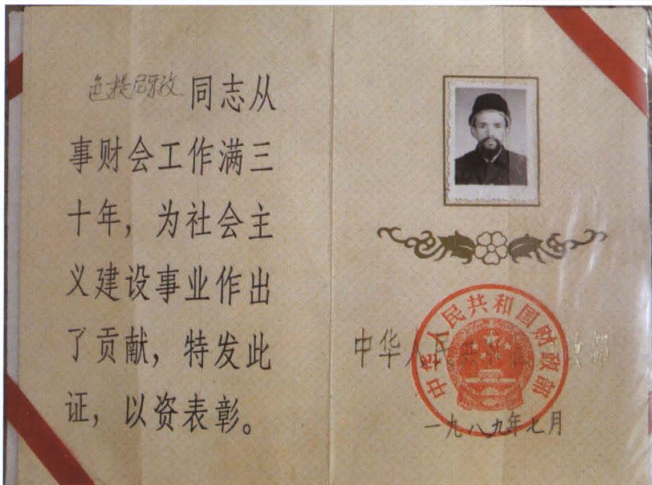 同志从
事财会工作满三
十年，为社会主
义建设事业作出
了贡献，特发此
证，以资表彰。
中华人民共和国财政部
中华人民共和国财政部
一九八九年七月